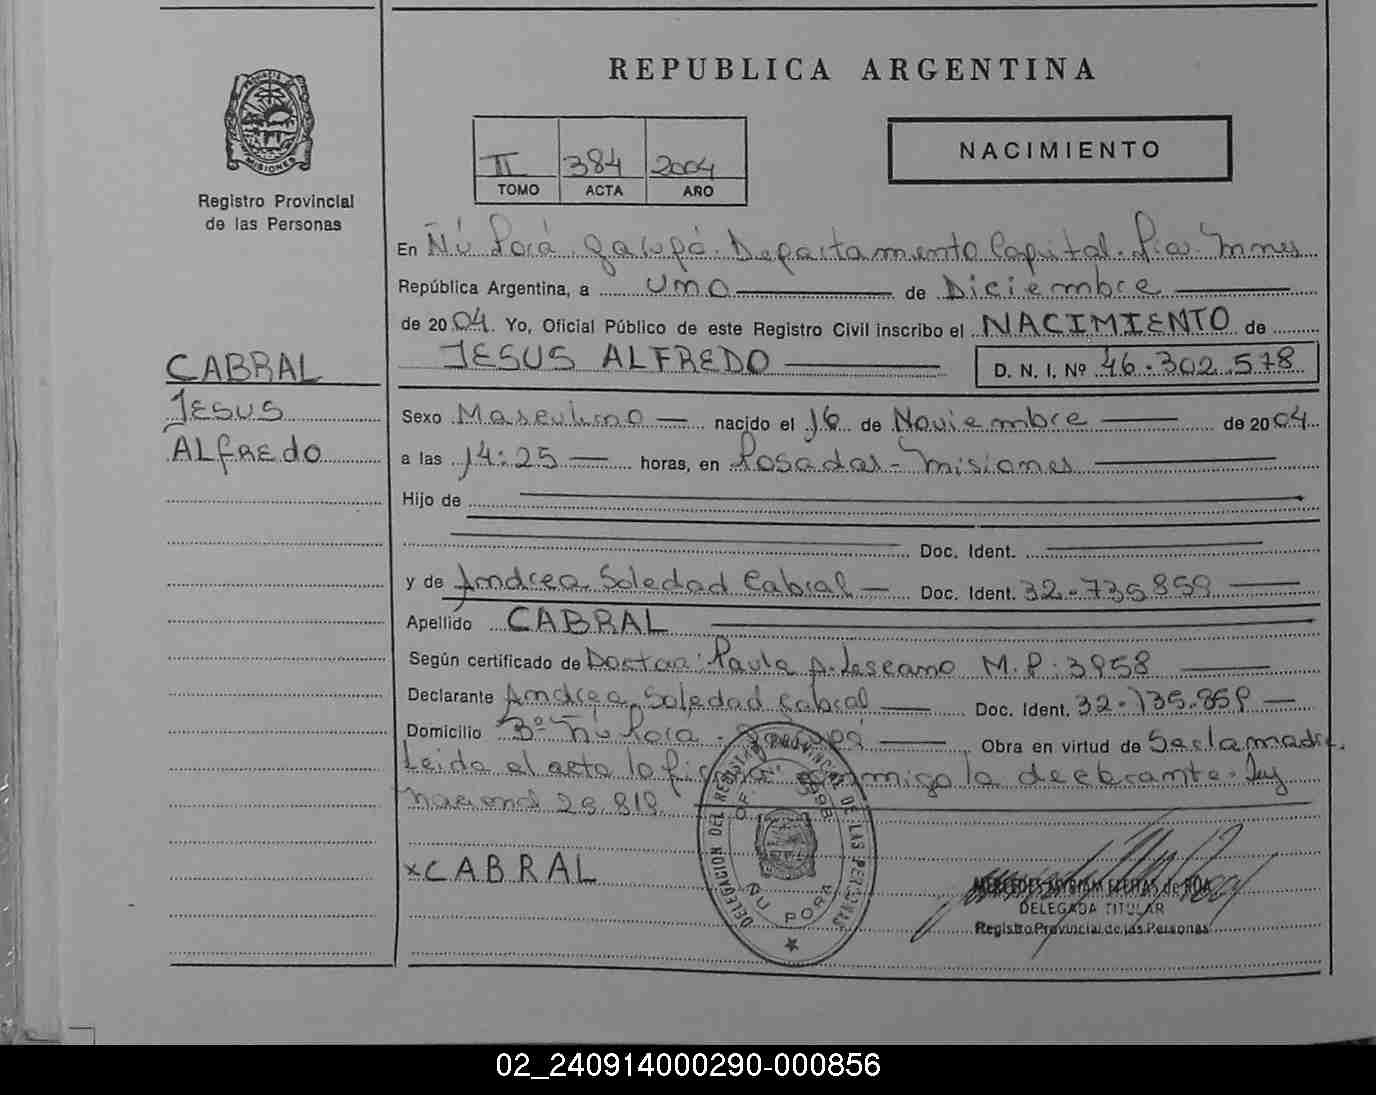 REPUBLICA ARGENTINA
PROVINCIA DE MISIONES
Registro Provincial
de las Personas
II 384 2004
TOMO ACTA AÑO
NACIMIENTO
En Ñú Porá. Garupá. Departamento Capital. Pia. Mnes
República Argentina, a uno de Diciembre
de 2004. Yo, Oficial Público de este Registro Civil inscribo el NACIMIENTO de
JESUS ALFREDO D. N. I. Nº 46.302.578
CABRAL
JESUS
ALFREDO
Sexo Masculino nacido el 16 de Noviembre de 2004
a las 14:25 horas, en Posadas - Misiones
Hijo de
Doc. Ident.
y de Andrea Soledad Cabral Doc. Ident. 32.735.859
Apellido CABRAL
Según certificado de Doctora: Paula A. Lescano M.P: 3958
Declarante Andrea Soledad Cabral Doc. Ident. 32.735.859
Domicilio Bº Ñú Porá - Garupá Obra en virtud de Ser la madre.
Leida el acta la firma conmigo la declarante. Ley
Nacional
x CABRAL
DELEGACION DEL REGISTRO PROVINCIAL DE LAS PERSONAS
ÑU PORA
DELEGADA TITULAR
Registro Provincial de las Personas
02_240914000290-000856